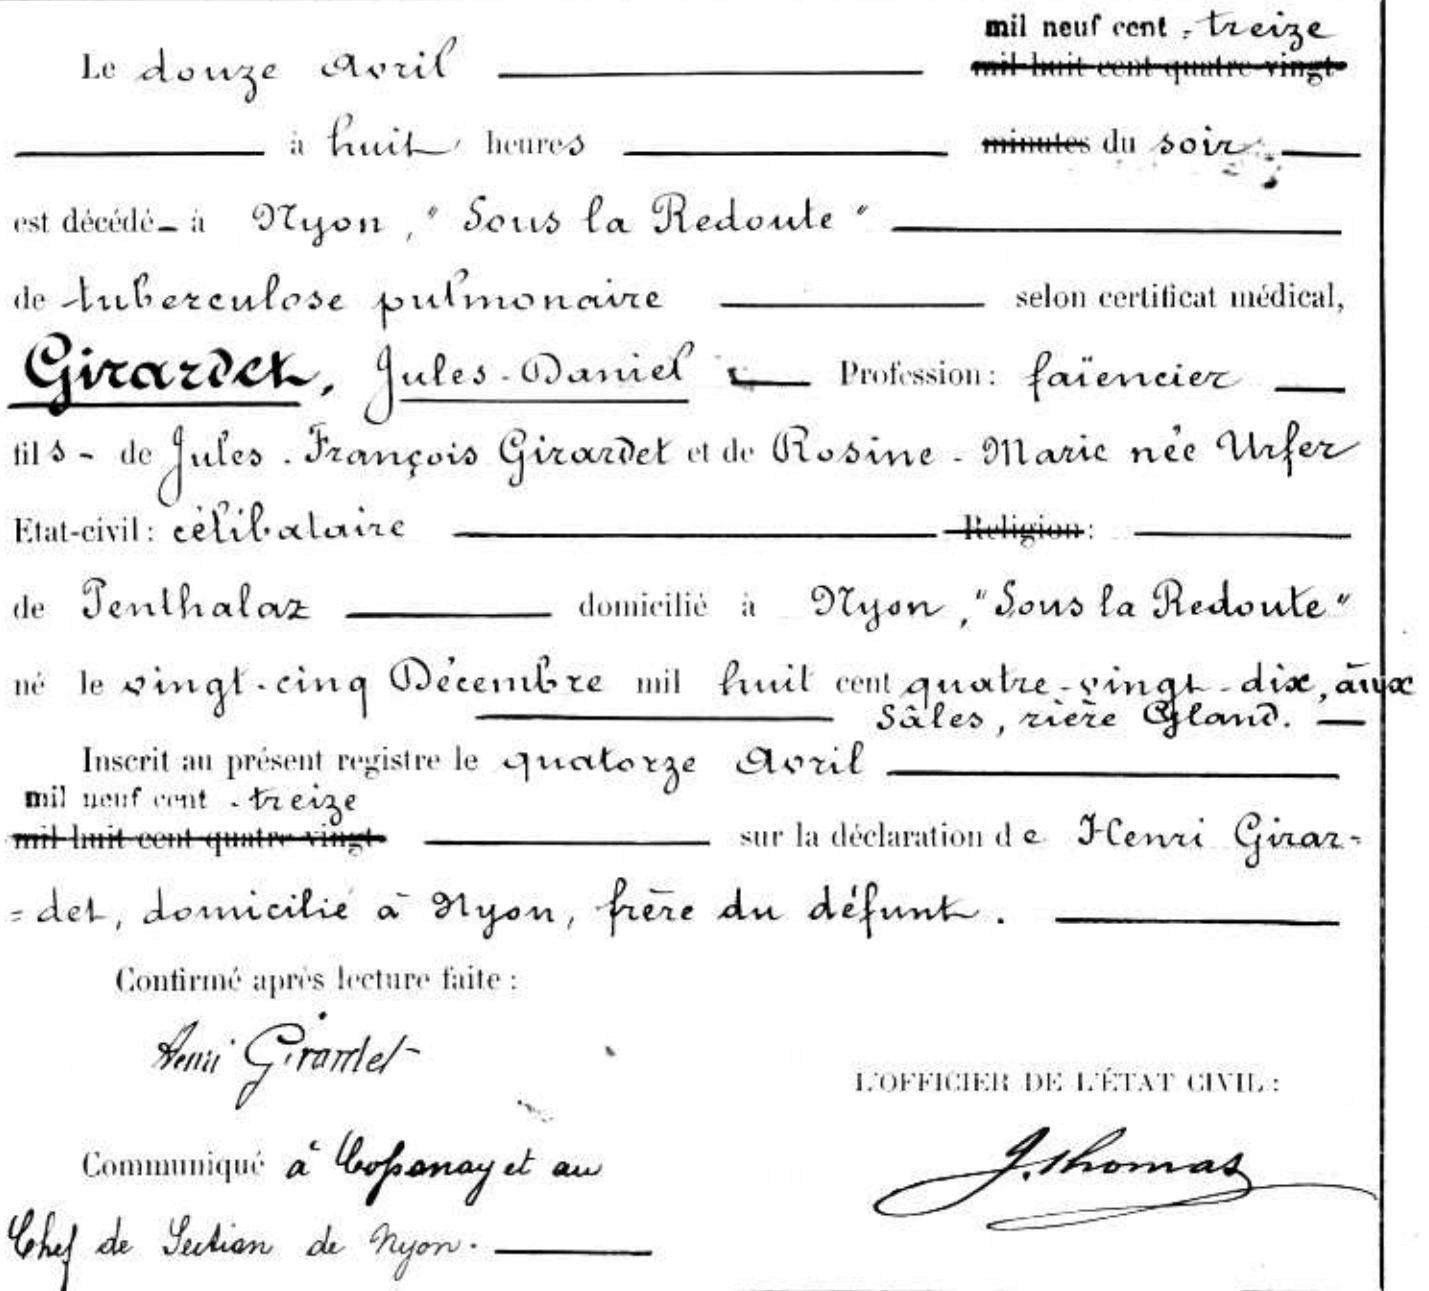 mil neuf cent treize
Le douze Avril mil huit cent quatre-vingt
à huit heures minutes du soir
est décédé à Nyon, "Sous la Redoute"
de tuberculose pulmonaire selon certificat médical,
Girardet, Jules-Daniel Profession: faïencier
fils de Jules-François Girardet et de Rosine-Marie née Urfer
Etat-civil: célibataire Religion:
de Penthalaz domicilié à Nyon, "Sous la Redoute"
né le vingt-cinq Décembre mil huit cent quatre-vingt-dix, aux
Sâles, rière Gland.
Inscrit au présent registre le quatorze Avril
mil neuf cent treize
mil huit cent quatre-vingt sur la déclaration de Henri Girar-
=det, domicilié à Nyon, frère du défunt.
Confirmé après lecture faite:
Henri Girardet
L'OFFICIER DE L'ÉTAT CIVIL:
Communiqué à Cossonay et au
J. Thomas
Chef de Section de Nyon.